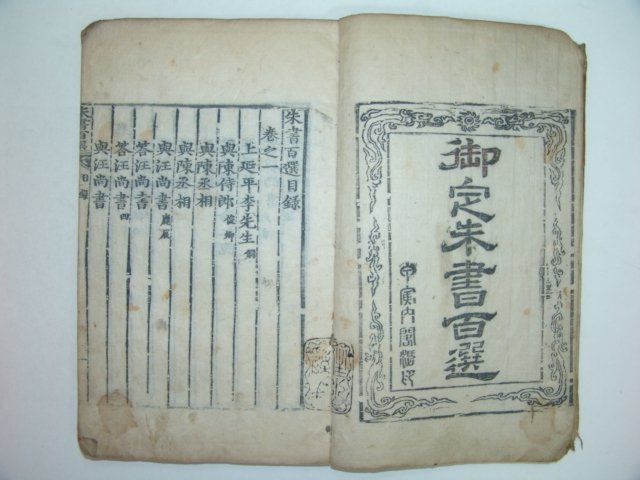 御定朱書百選
甲寅內閣活印
朱書百選目録
卷之一
上延平李先生侗
與陳侍郎俊卿
與陳丞相
與陳丞相
與汪尚書應辰
荅汪尚書
荅汪尚書四
與汪尚書